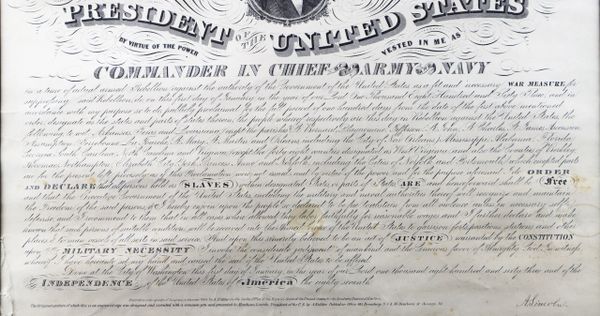 PRESIDENT OF THE UNITED STATES
BY VIRTUE OF THE POWER VESTED IN ME AS
COMMANDER IN CHIEF OF THE ARMY AND NAVY
in a time of actual armed Rebellion against the authority of the Government of the United States as a fit and necessary WAR MEASURE for
suppressing said Rebellion, do on this first day of January in the year of our Lord One Thousand Eight Hundred and Sixty Three, and in
accordance with my purpose so to do publicly proclaimed for the full period of one hundred days from the date of the first above mentioned
order designate as the States and parts of States wherein the people whereof respectively are this day in Rebellion against the United States, the
following to wit Arkansas, Texas and Louisiana except the parishes of St Bernard, Plaquemines, Jefferson, St John, St Charles, St James, Ascension
Assumption, Terrebonne, La Fourche, St Mary, St Martin and Orleans including the City of New Orleans, Mississippi, Alabama, Florida
Georgia, South Carolina, North Carolina and Virginia, except the forty eight counties designated as West Virginia, and also the Counties of Berkley
Accomac, Northampton, Elizabeth City, York, Princess Anne and Norfolk including the Cities of Norfolk and Portsmouth, which excepted parts
are for the present left precisely as if this Proclamation were not issued And by virtue of the power and for the purpose aforesaid I do ORDER
AND DECLARE that all persons held as SLAVES within designated States & parts of States ARE and henceforward shall be Free
and that the Executive Government of the United States including the military and naval authorities thereof will recognize and maintain
the Freedom of the said persons & I hereby enjoin upon the people so declared to be free to abstain from all violence unless in necessary self
defense, and I recommend to them that in all cases when allowed they labor faithfully for reasonable wages and I further declare and make
known that such persons of suitable condition will be received into the armed service of the United States to garrison forts positions stations and other
places & to man vessels of all sorts in said service And upon this sincerely believed to be an act of JUSTICE warranted by the CONSTITUTION
upon MILITARY NECESSITY I invoke the considerate judgement of mankind and the Gracious favor of Almighty God. In witness
whereof I have hereunto set my hand and caused the seal of the United States to be affixed.
Done at the City of Washington this first day of January, in the year of our Lord one thousand eight hundred and sixty three and of the
INDEPENDENCE of the United States of America the eighty seventh
A. Lincoln